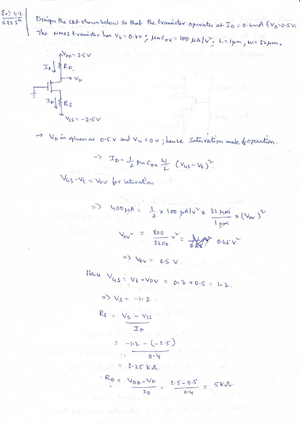 Ex) 4.2
5th Edn
Design the ckt shown below so that the transistor operates at ID = 0.4mA & VD = 0.5V.
The NMOS transistor has Vt = 0.7V; μnCox = 100 μA/V², L = 1μm, W = 32μm.
VDD = 2.5V
ID ↓ RD
VD
ID ↓ RS
VSS = -2.5V
→ VD is given as 0.5V and VG = 0V; hence saturation mode of operation.
⇒ ID = 1/2 μn Cox W/L (VGS - Vt)²
VGS - Vt = VOV for saturation
⇒ 400μA = 1/2 × 100 μA/V² × 32 μm/1 μm × (VOV)²
VOV² = 800/3200 V² = 0.25 V²
⇒ VOV = 0.5 V
Hence VGS = Vt + VOV = 0.7 + 0.5 = 1.2.
⇒ VS = -1.2.
RS = VS - VSS / ID
= -1.2 - (-2.5) / 0.4
= 3.25 kΩ
∴ RD = VDD - VD / ID = 2.5 - 0.5 / 0.4 = 5kΩ